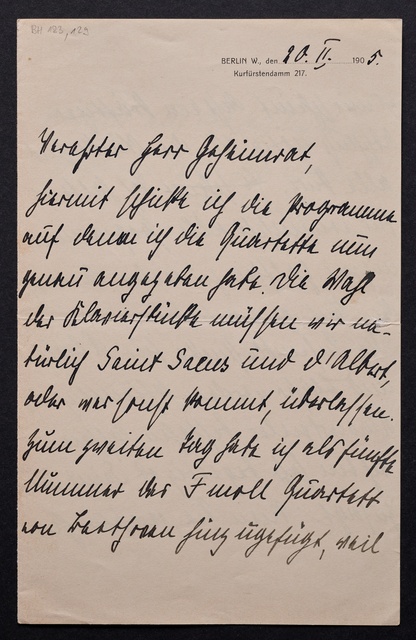 BH 123, 129
BERLIN W., den 20. II. 1905.
Kurfürstendamm 217.
Verehrter Herr Geheimrat,
hiermit schicke ich die Programme
auf denen ich die Quartette nun
genau angegeben habe. Die Wahl
der Klavierstücke müssen wir na-
türlich Saint Saens und d'Albert,
oder wer sonst kommt, überlassen.
Zum zweiten Tag habe ich als fünfte
Nummer das F moll Quartett
von Beethoven hinzugefügt, weil